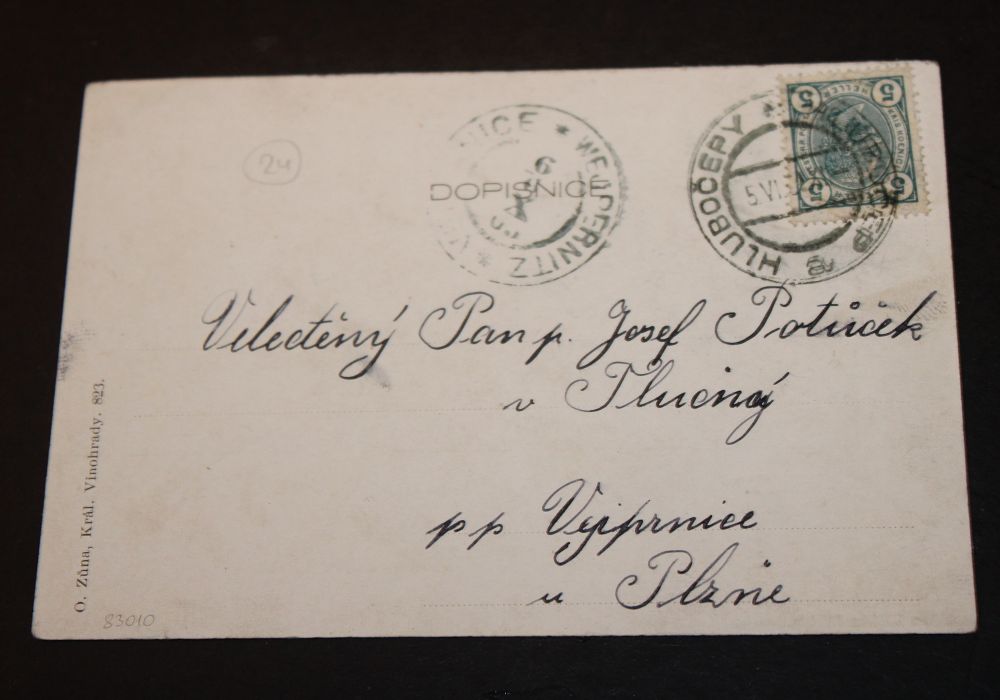 DOPISNICE
24
WEJPERNITZ
HLUBOČEPY
5 HELLER 5
5 5
5.VI.
Velectěný Pan p. Josef Potůček
v Tlučný
pp Vejprnice
u Plzně
O. Zůna, Král. Vinohrady. 823.
83010